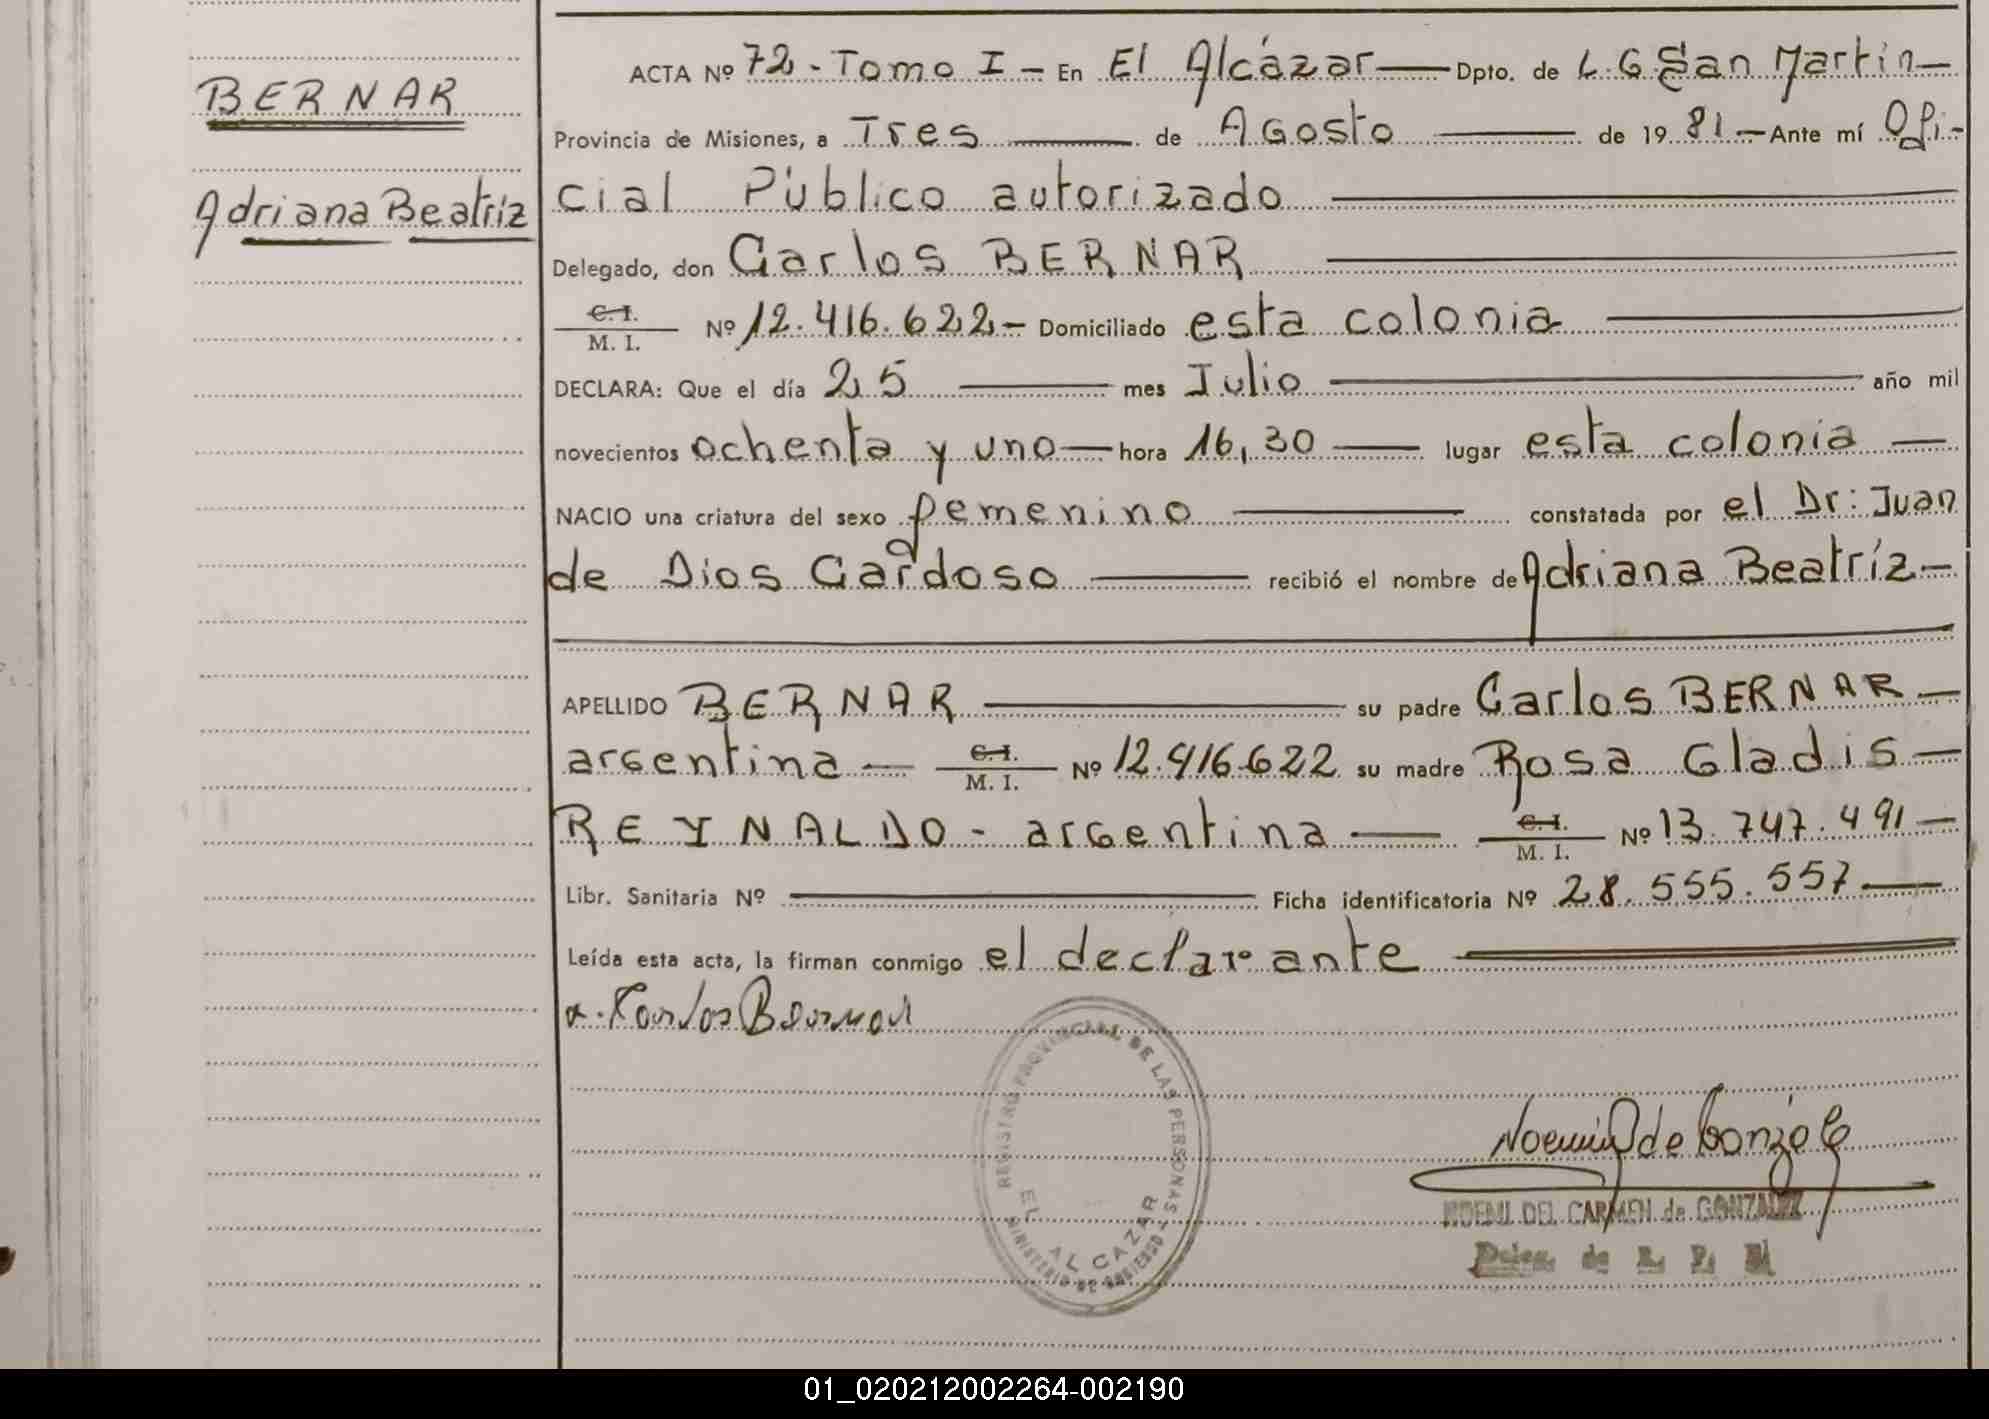 BERNAR
Adriana Beatriz
ACTA Nº 72 - Tomo I - En El Alcázar — Dpto. de L.G. San Martin —
Provincia de Misiones, a Tres — de Agosto — de 1981.— Ante mí Ofi-
cial Público autorizado —
Delegado, don Carlos BERNAR —
C. I.
M. I. Nº 12.416.622 - Domiciliado esta colonia —
DECLARA: Que el día 25 — mes Julio — año mil
novecientos ochenta y uno — hora 16,30 — lugar esta colonia —
NACIO una criatura del sexo femenino — constatada por el Dr: Juan
de Dios Cardoso — recibió el nombre de Adriana Beatríz —
APELLIDO BERNAR — su padre Carlos BERNAR —
argentina — C. I. M. I. Nº 12.416.622 su madre Rosa Gladis —
REYNALDO - argentina — C. I. M. I. Nº 13.747.491 —
Libr. Sanitaria Nº — Ficha identificatoria Nº 28.555.557 —
Leída esta acta, la firman conmigo el declarante —
x. Karlos Bernar
REGISTRO PROVINCIAL DE LAS PERSONAS
EL ALCAZAR
MINISTERIO DE GOBIERNO
Noemí de Gonzalez
NOEMI DEL CARMEN de GONZALEZ
Deleg. de R. P.
01_020212002264-002190